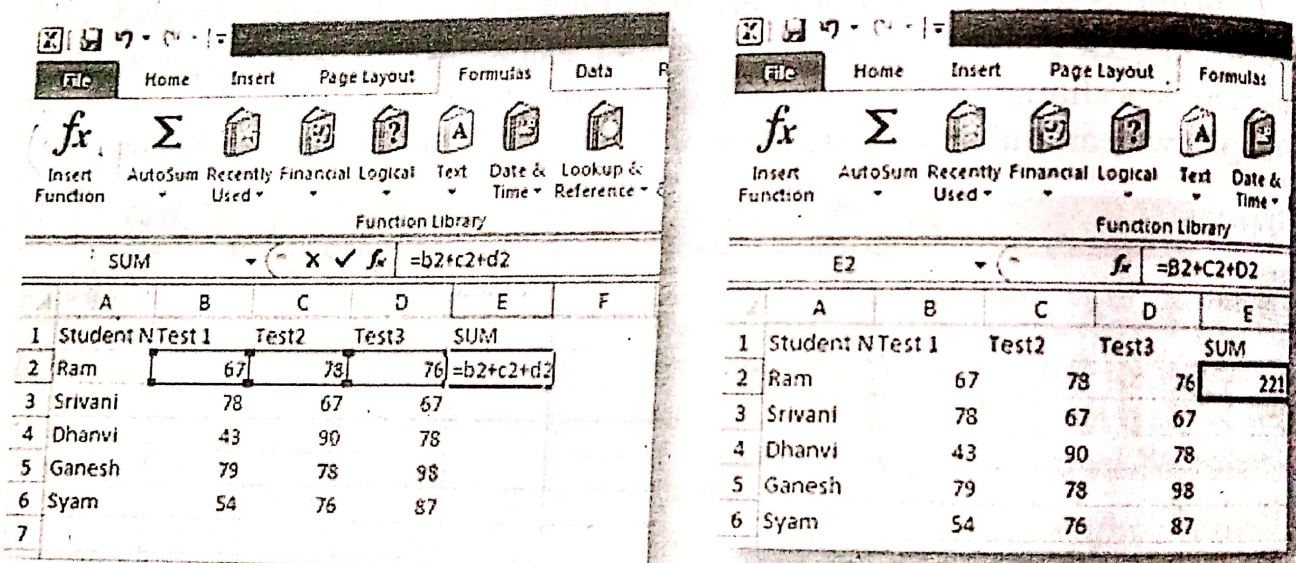 File Home Insert Page Layout Formulas Data
Insert Function AutoSum Recently Used Financial Logical Text Date & Time Lookup & Reference
Function Library
SUM =b2+c2+d2
A B C D E F
1 Student N Test 1 Test2 Test3 SUM
2 Ram 67 78 76 =b2+c2+d2
3 Srivani 78 67 67
4 Dhanvi 43 90 78
5 Ganesh 79 78 98
6 Syam 54 76 87
7
File Home Insert Page Layout Formulas
Insert Function AutoSum Recently Used Financial Logical Text Date & Time
Function Library
E2 fx =B2+C2+D2
A B C D E
1 Student N Test 1 Test2 Test3 SUM
2 Ram 67 78 76 221
3 Srivani 78 67 67
4 Dhanvi 43 90 78
5 Ganesh 79 78 98
6 Syam 54 76 87